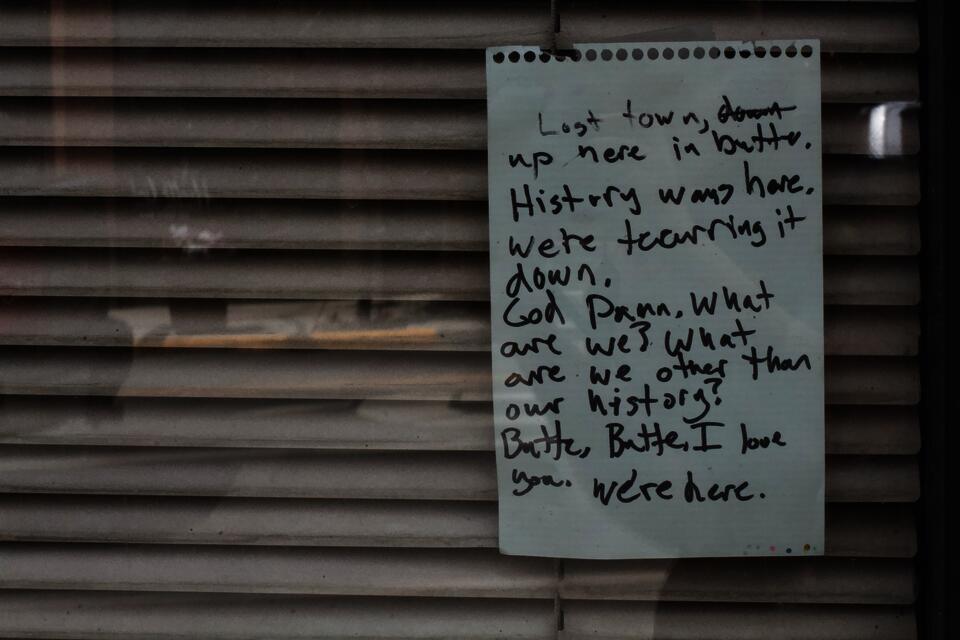 Lost town, down
up here in butte.
History was here.
we're tearring it
down.
God Damn. What
are we? What
are we other than
our history?
Butte, Butte, I love
you. we're here.